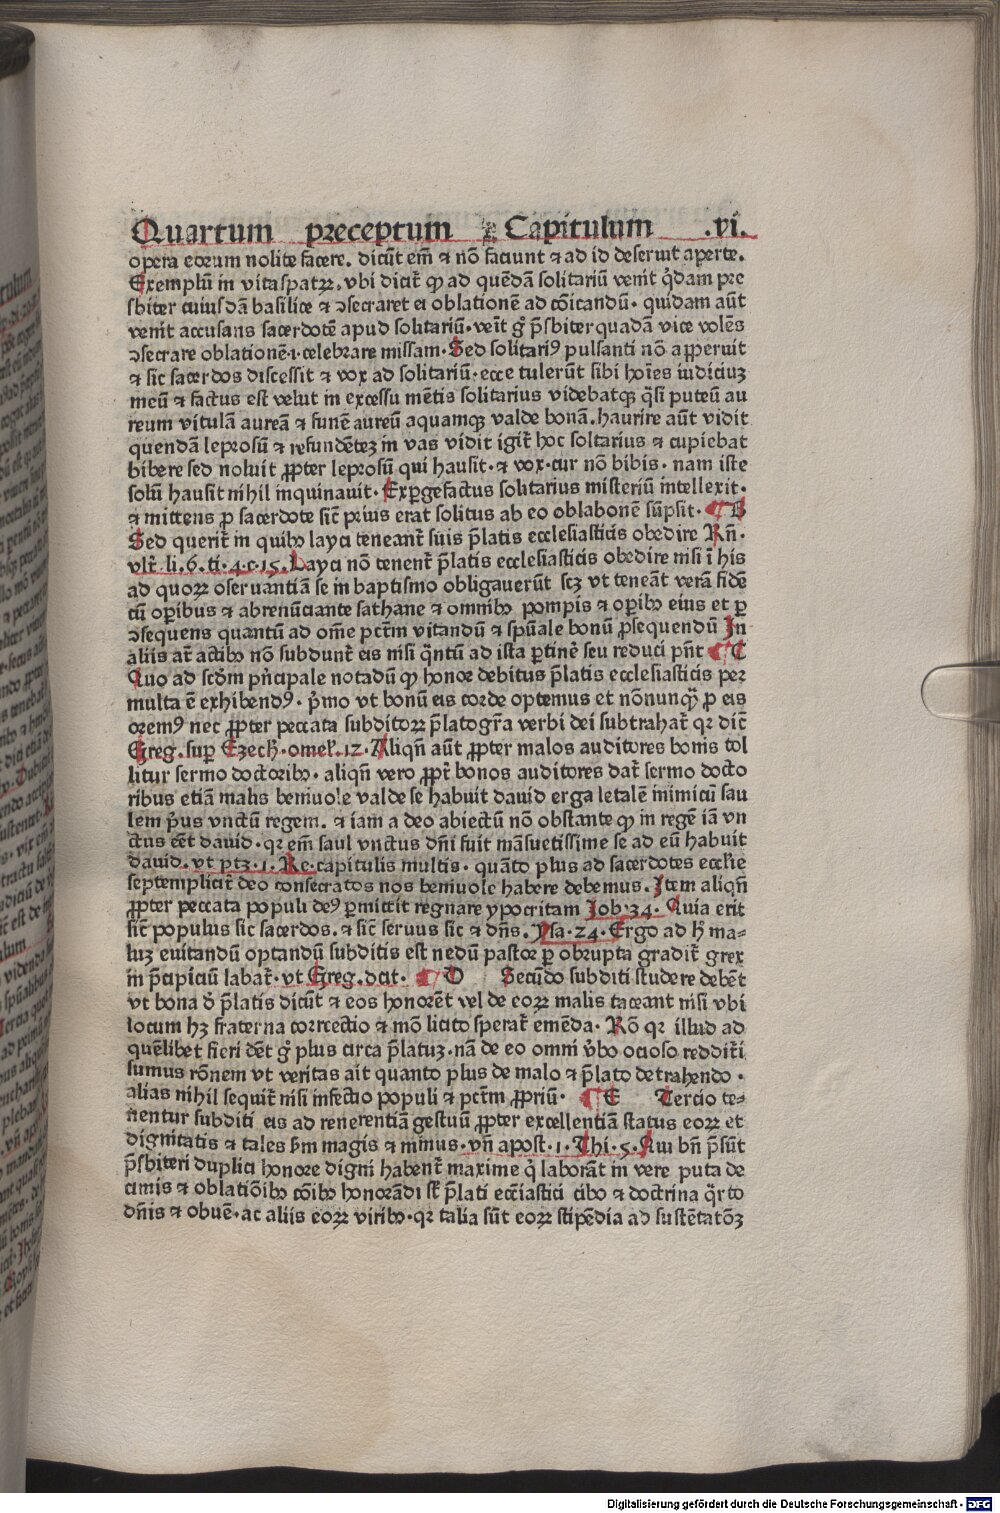 Quartum preceptum Capitulum .vi.
opera eorum nolite facere. dicūt em̄ ⁊ nō faciunt ⁊ ad id deseruit aperte.
Exemplū in vitaspatꝝ. vbi dicit̄ ꝙ ad quēdā solitariū venit q̇dam pre
sbiter cuiusdā basilice ⁊ ꝯsecraret ei oblationē ad cōicandū. quidam aūt
venit accusans sacerdotē apud solitariū. veīt gͦ p̄sbiter quadā vice volēs
ꝯsecrare oblationē.i.celebrare missam. Sed solitariꝰ pulsanti nō aꝑperuit
⁊ sic sacerdos discessit ⁊ vox ad solitariū. ecce tulerūt sibi hoīes iudiciuꝫ
meū ⁊ factus est velut in excessu mētis solitarius videbatꝗ q̄si puteū au
reum vitulā aureā ⁊ funē aureū aquamꝗ valde bonā. haurire aūt vidit
quendā leprosū ⁊ refundēteꝫ in vas vidit igit̄ hoc soltarius ⁊ cupiebat
bibere sed noluit ꝓpter leprosū qui hausit. ⁊ vox. cur nō bibis. nam iste
solū hausit nihil inquinauit. Exꝑgefactus solitarius misteriū intellexit.
⁊ mittens ꝓ sacerdote sic̄ prius erat solitus ab eo oblabonē sūpsit. ¶ B
Sed querit̄ in quibꝰ layci teneant̄ suis p̄latis ecclesiasticis obedire Rn̄.
vlt̄ li.6.ti.4.c.15. Layci nō tenent̄ p̄latis ecclesiasticis obedire nisi ī his
ad quoꝝ oseruantiā se in baptismo obligauerūt scꝫ vt teneāt verā fidē
cū oꝑibus ⁊ abrenūciante sathane ⁊ omnibꝰ pompis ⁊ oꝑibꝰ eius et ꝑ
ꝯsequens quantū ad om̄e pctm̄ vitandū ⁊ spūale bonū ꝓsequendū In
aliis at̄ actibꝰ nō subdunt̄ eis nisi q̄ntū ad ista ꝑtinē seu reduci pn̄t ¶ C
Quo ad scd̄m pn̄cipale notadū ꝙ honor debitus p̄latis ecclesiasticis per
multa ē exhibendꝰ. p̄mo vt bonū eis corde optemus et nōnunꝙ̄ ꝓ eis
oremꝰ nec ꝓpter peccata subditoꝝ p̄latogr̄a verbi dei subtrahat̄ qꝛ dic̄
Greg. suꝑ Ezech̄. omel̄.12. Aliqn̄ aūt ꝓpter malos auditores bonis tol
litur sermo doctoribꝰ. aliqn̄ vero ꝓpt̄ bonos auditores dat̄ sermo docto
ribus etiā malis beniuole valde se habuit dauid erga letalē inimicū sau
lem p̄us vnctū regem. ⁊ iam a deo abiectū nō obstante ꝙ in regē iā vn
ctus eēt dauid. qꝛ em̄ saul vnctus dn̄i fuit māsuetissime se ad eū habuit
dauid. vt ptꝫ.1. Re. capitulis multis. quāto plus ad sacerdotes eccl̄ie
septemplicit̄ deo consecratos nos beniuole habere debemus. Item aliqn̄
ꝓpter peccata populi deꝰ ꝑmittit regnare ypocritam Job.34. Quia erit
sic̄ populus sic sacerdos. ⁊ sic̄ seruus sic ⁊ dn̄s. Ysa.24. Ergo ad h̄ ma⸗
luꝫ euitandū optandū subditis est nedū pastor ꝑ obrupta gradit̄ grex
in p̄cipiciū labat̄. vt Greg. dcit. ¶ D Secūdo subditi studere debēt
vt bona ð p̄latis dicūt ⁊ eos honorēt vel de eoꝝ malis taceant nisi vbi
locum hꝫ fraterna correctio ⁊ mō licito sperat̄ emēda. Rō qꝛ illud ad
quēlibet fieri dēt gͦ plus circa p̄latuꝫ. nā de eo omni v̄bo ocioso redditi
sumus rōnem vt veritas ait quanto plus de malo ⁊ p̄lato detrahendo.
alias nihil sequit̄ nisi infectio populi ⁊ pctm̄ ꝓpriū. ¶ E Tercio te⸗
nentur subditi eis ad renerentiā gestuū ꝓpter excellentiā status eoꝝ et
dignitatis ⁊ tales hm̄ magis ⁊ minus. vn̄ apost.1. Thi.5. Qui bn̄ p̄sūt
p̄sbiteri duplici honore digni habent̄ maxime q̇ laborāt in vere puta de
cimis ⁊ oblatiōibꝰ cōibꝰ honorādi sc̄ p̄lati ecc̄iastici cibo ⁊ doctrina q̄rto
dn̄is ⁊ obuē. ac aliis eoꝝ viribꝰ. qꝛ talia sūt eoꝝ stipēdia ad sustētatōꝫ
Digitalisierung gefördert durch die Deutsche Forschungsgemeinschaft - DFG